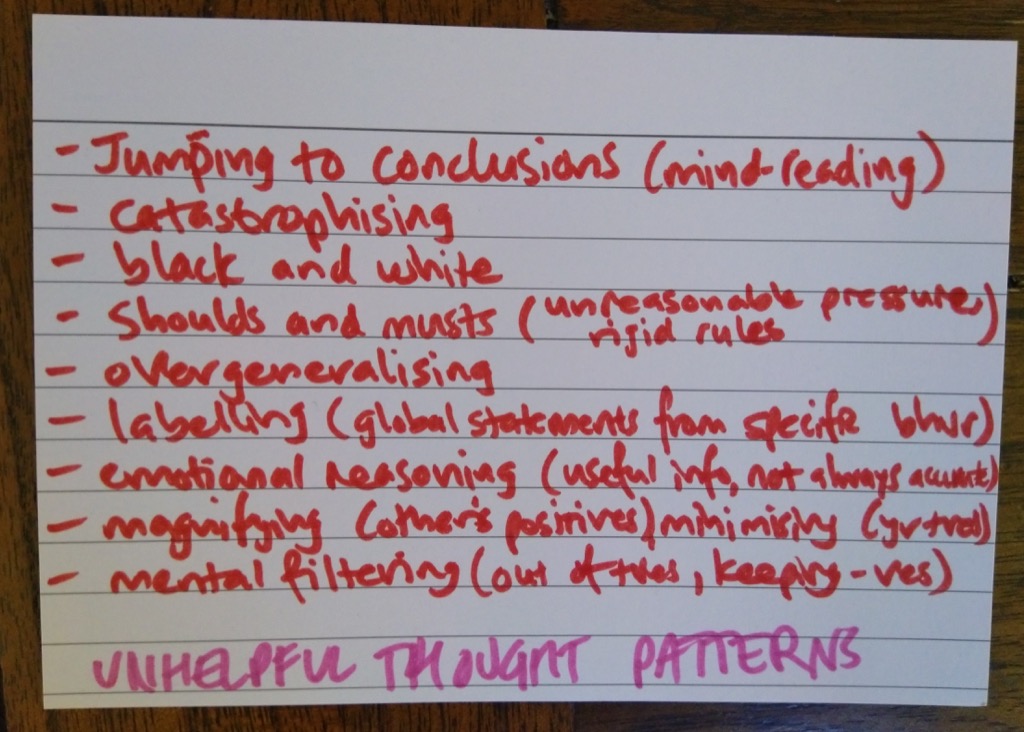 - Jumping to conclusions (mind-reading)
- catastrophising
- black and white
- Shoulds and musts (unreasonable pressure,
rigid rules)
- overgeneralising
- labelling (global statements from specific bhvr)
- emotional reasoning (useful info, not always accurate)
- magnifying (other's positives) minimising (yr +ves)
- mental filtering (out +ves, keeping -ves)
UNHELPFUL THOUGHT PATTERNS